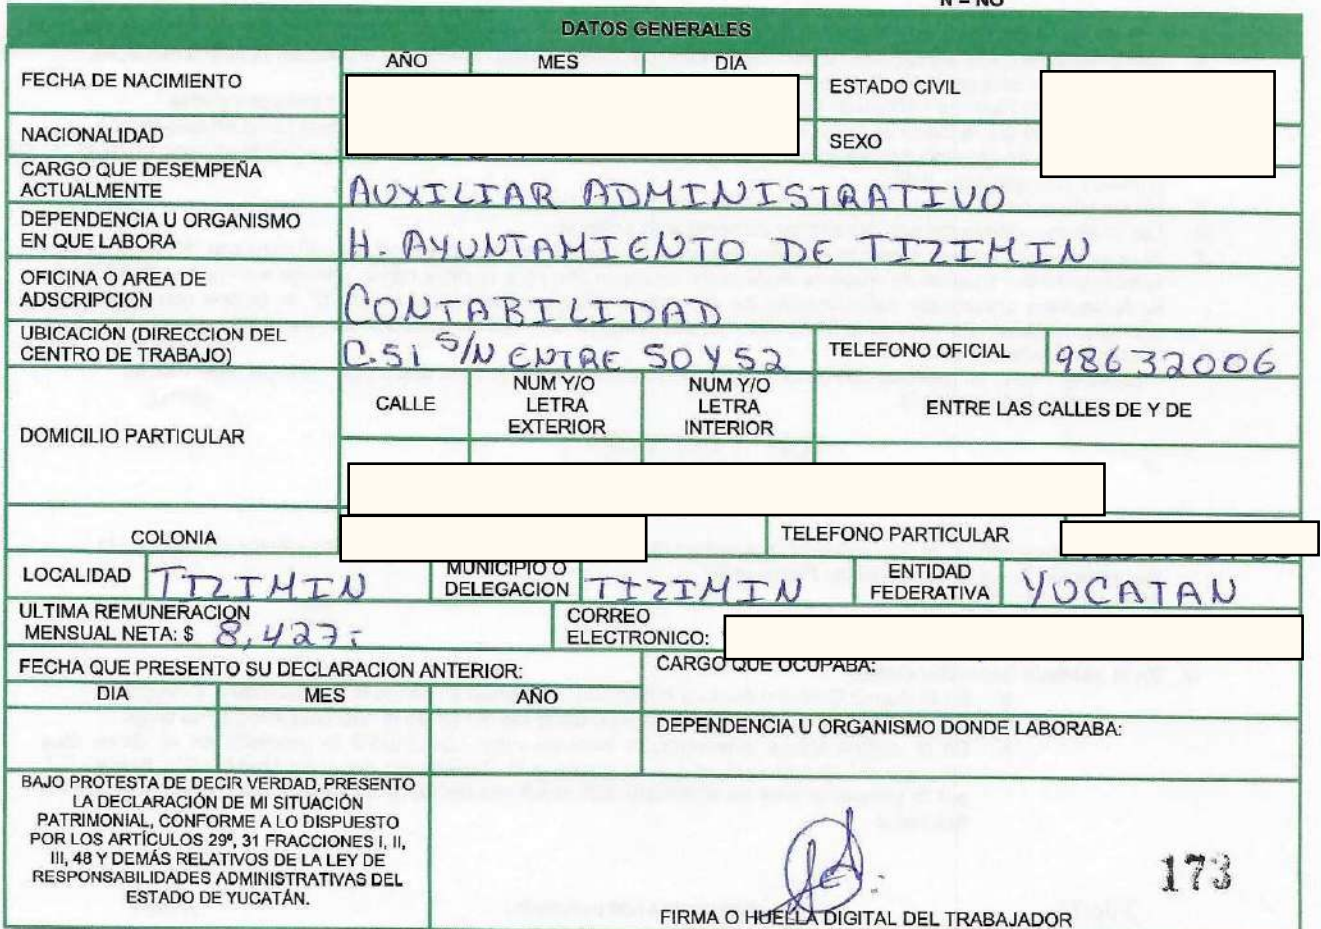 N = NO
DATOS GENERALES
FECHA DE NACIMIENTO
AÑO MES DIA
ESTADO CIVIL
NACIONALIDAD
SEXO
CARGO QUE DESEMPEÑA
ACTUALMENTE
AUXILIAR ADMINISTRATIVO
DEPENDENCIA U ORGANISMO
EN QUE LABORA
H. AYUNTAMIENTO DE TIZIMIN
OFICINA O AREA DE
ADSCRIPCION
CONTABILIDAD
UBICACIÓN (DIRECCION DEL
CENTRO DE TRABAJO)
C.51 S/N ENTRE 50 Y 52
TELEFONO OFICIAL
98632006
DOMICILIO PARTICULAR
CALLE
NUM Y/O
LETRA
EXTERIOR
NUM Y/O
LETRA
INTERIOR
ENTRE LAS CALLES DE Y DE
COLONIA
TELEFONO PARTICULAR
LOCALIDAD
TIZIMIN
MUNICIPIO O
DELEGACION
TIZIMIN
ENTIDAD
FEDERATIVA
YUCATAN
ULTIMA REMUNERACION
MENSUAL NETA: $ 8,427.-
CORREO
ELECTRONICO:
FECHA QUE PRESENTO SU DECLARACION ANTERIOR:
CARGO QUE OCUPABA:
DIA MES AÑO
DEPENDENCIA U ORGANISMO DONDE LABORABA:
BAJO PROTESTA DE DECIR VERDAD, PRESENTO
LA DECLARACIÓN DE MI SITUACIÓN
PATRIMONIAL, CONFORME A LO DISPUESTO
POR LOS ARTÍCULOS 29º, 31 FRACCIONES I, II,
III, 48 Y DEMÁS RELATIVOS DE LA LEY DE
RESPONSABILIDADES ADMINISTRATIVAS DEL
ESTADO DE YUCATÁN.
173
FIRMA O HUELLA DIGITAL DEL TRABAJADOR